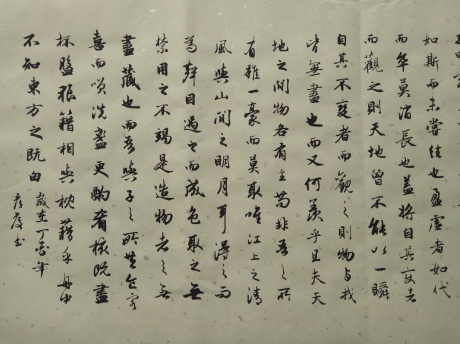 如斯而未嘗往也盈虛者如代
而卒莫消長也蓋將自其變者
而觀之則天地曾不能以一瞬
自其不變者而觀之則物与我
皆無盡也而又何羨乎且夫天
地之間物各有主苟非吾之所
有雖一豪而莫取唯江上之清
風與山間之明月耳得之而
為聲目遇之而成色取之無
禁用之不竭是造物者之無
盡藏也而吾與子之所共食客
喜而笑洗盞更酌肴核既盡
杯盤狼籍相與枕藉乎舟中
不知東方之既白
歲在丁酉年
書